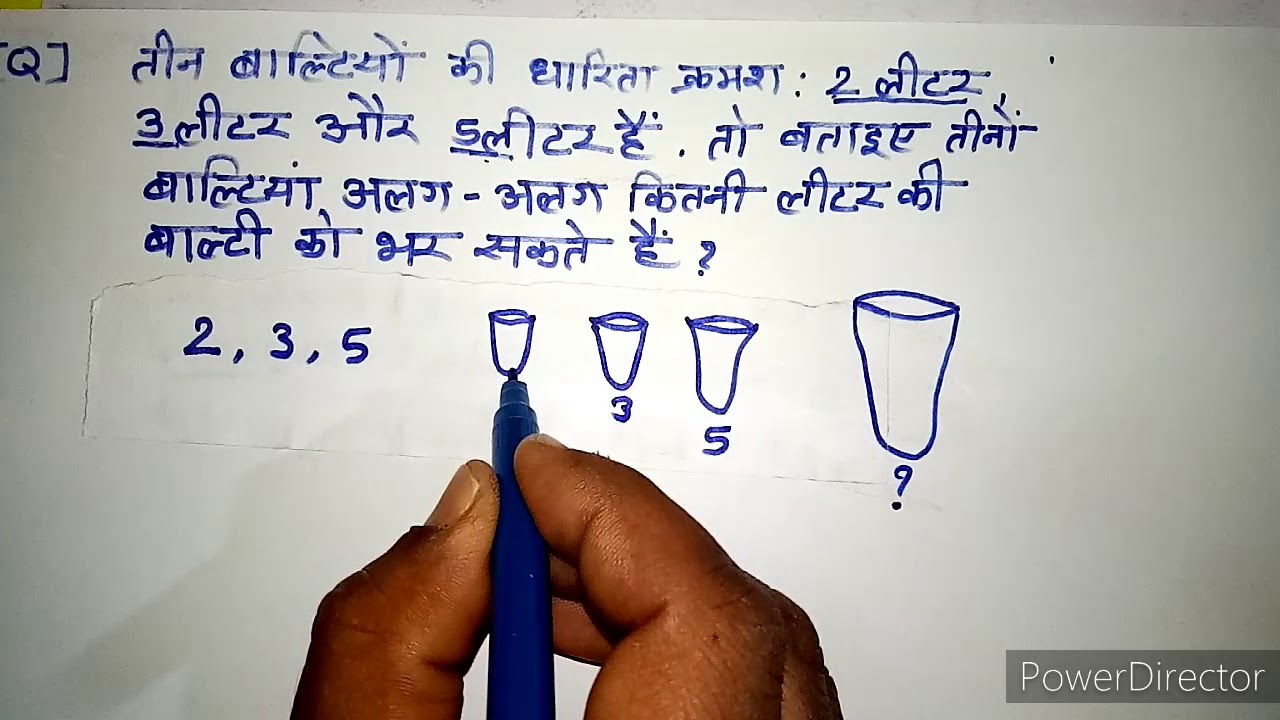 [Q] तीन बाल्टियों की धारिता क्रमश: 2 लीटर,
3 लीटर और 5 लीटर हैं. तो बताइए तीनों
बाल्टियां अलग - अलग कितनी लीटर की
बाल्टी को भर सकते हैं ?
2, 3, 5
3
5
?
PowerDirector